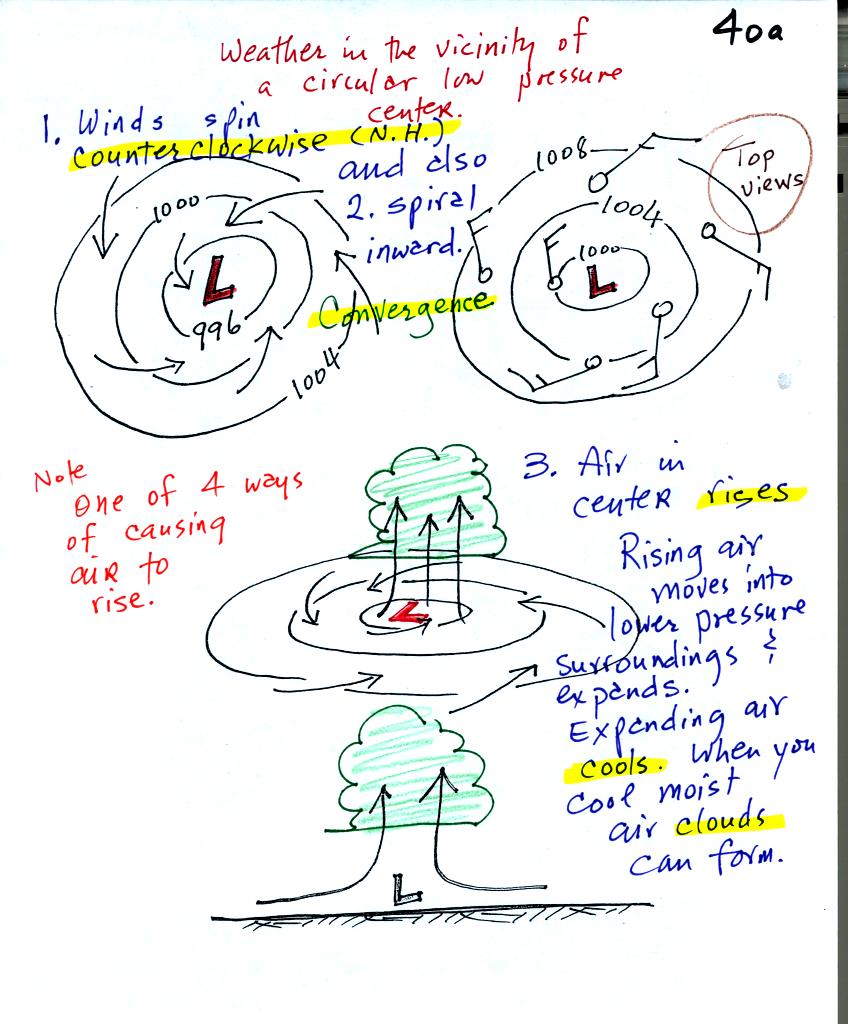 40a
Weather in the vicinity of
a circular low pressure
center.
1. Winds spin
counterclockwise (N.H.)
and also
2. spiral
inward.
Convergence
1000
L
996
1004
1008
1004
1000
L
Top
views
Note
One of 4 ways
of causing
air to
rise.
L
3. Air in
center rises
Rising air
moves into
lower pressure
surroundings &
expands.
Expanding air
cools. When you
cool moist
air clouds
can form.
L